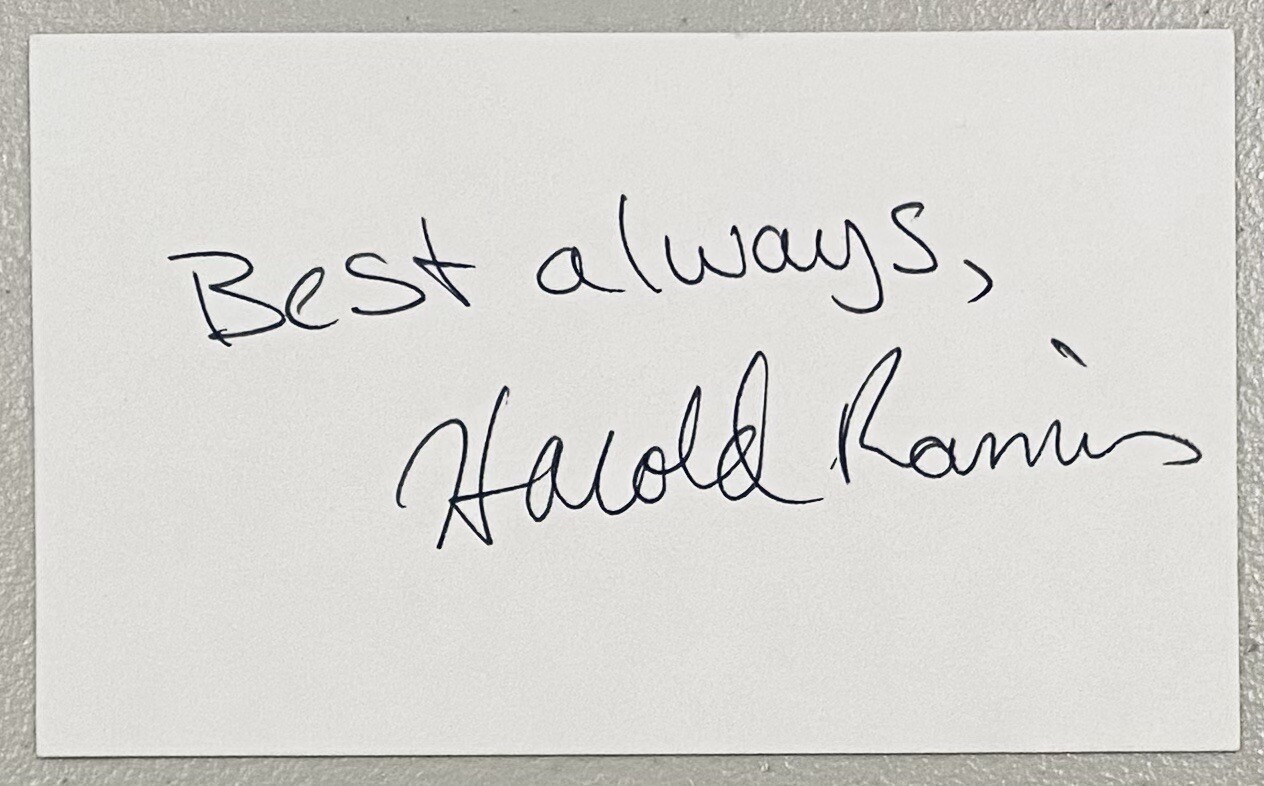 Best always,
Harold Ramis